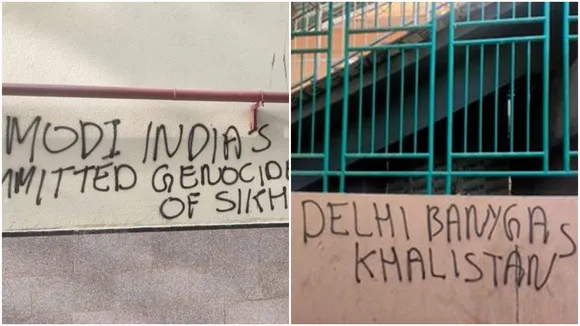 MODI INDIA'S
MMITTED GENOCIDE
OF SIKH
DELHI BANYGAS
KHALISTAN